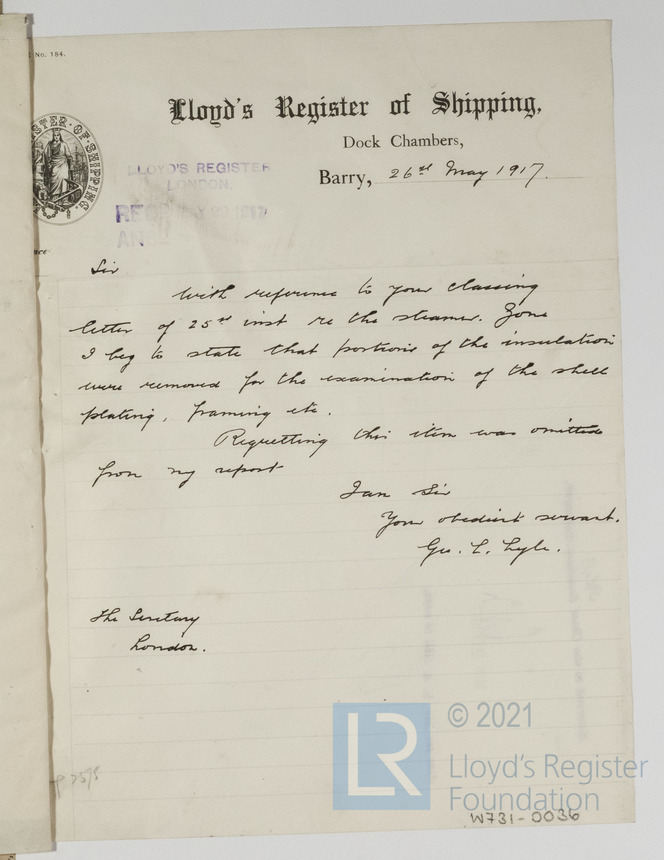 No. 184.
Lloyd's Register of Shipping.
Dock Chambers,
Barry, 26th May 1917.
LLOYD'S REGISTER
LONDON.
Sir
With reference to your classing
letter of 25th inst re the steamer. Zone
I beg to state that portions of the insulation
were removed for the examination of the shell
plating, framing etc.
Regretting this item was omitted
from my report
I am Sir
Your obedient servant.
Geo. L. Lyle.
The Secretary
London.
LR
© 2021
Lloyd's Register
Foundation
W731-0036